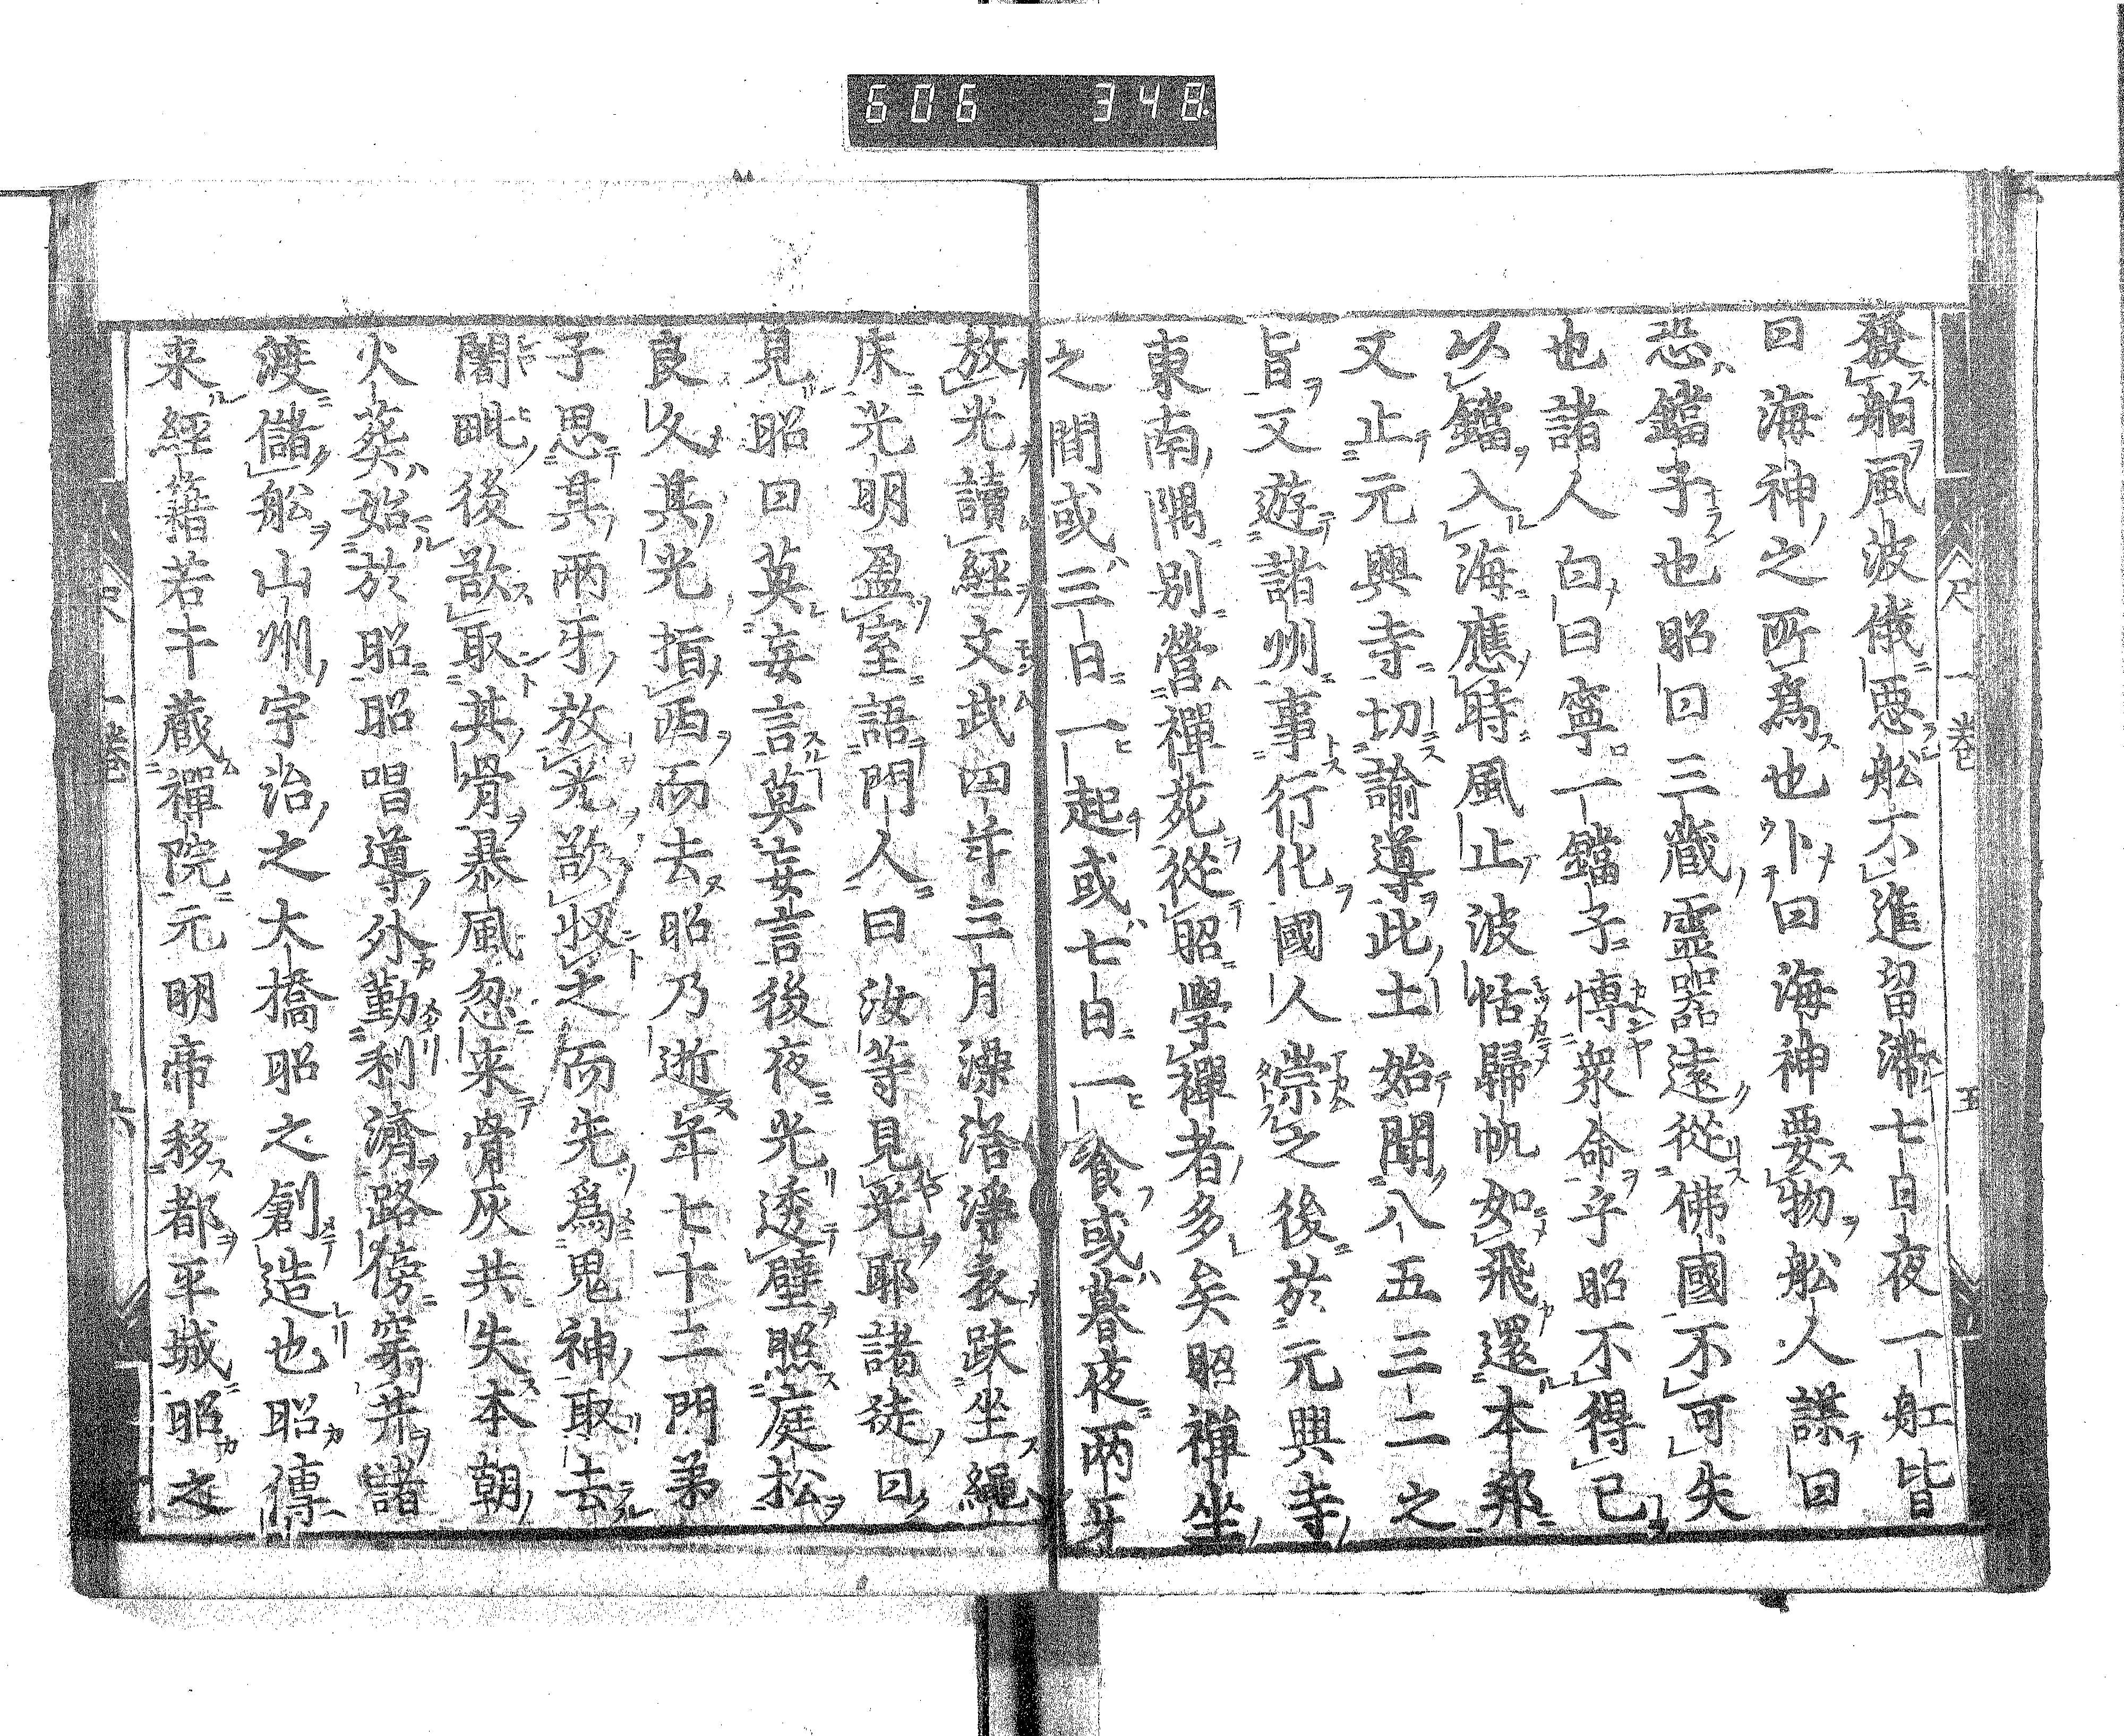 606 348
發舶風波俄惡舩不進留滯七日夜一舡皆
曰海神之所爲也卜曰海神要物舩人謀曰
恐鐺子也昭曰三藏靈器遠從佛國不可失
也諸人白曰寧一鐺子博衆命乎昭不得已
以鐺入海應時風止波恬歸帆如飛還本邦
又止元興寺切諭導此土始聞八五三二之
旨又遊諸州事行化國人崇之後於元興寺
東南隅別營禪苑從昭學禪者多矣昭禅坐
之間或三日一起或七日一飡或暮夜兩牙
放光讀經文武四年三月澡浴淨衣趺坐繩
床光明盈室語門人曰汝等見光耶諸徒曰
見昭曰莫妄言莫妄言後夜光透壁照庭松
良久其光指西而去昭乃逝年七十二門弟
子思其兩牙放光欲収之而先爲鬼神取去
闍毗後欲取其骨暴風忽来骨灰共失本朝
火葬始於昭昭唱導外勤利濟路傍穿井諸
渡儲舩山州宇治之大橋昭之創造也昭傳
来經籍若干藏禪院元明帝移都平城昭之
一卷
五
一卷
六